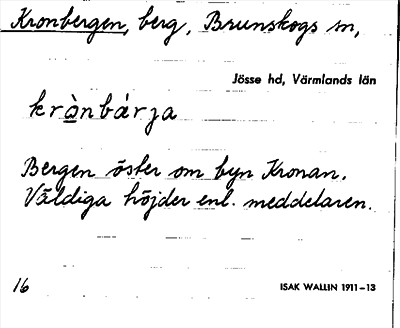 Kronbergen, berg, Brunskogs sn,
Jösse hd, Värmlands län
krònbárja
Bergen öster om byn Kronan.
Väldiga höjder enl. meddelaren.
16
ISAK WALLIN 1911–13